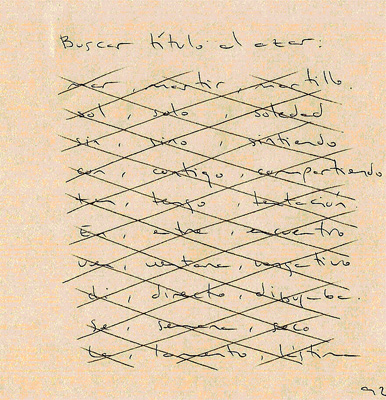 Buscar título al azar:
mar, martir, martillo.
sol, solo, soledad
sin, sino, sintiendo
con, contigo, compartiendo
ten, tengo, tentación
En, entre, encuentro
ven, ventana, vengativo
di, directo, dibujaba.
se, semana, seco
la, lamento, lástima
92